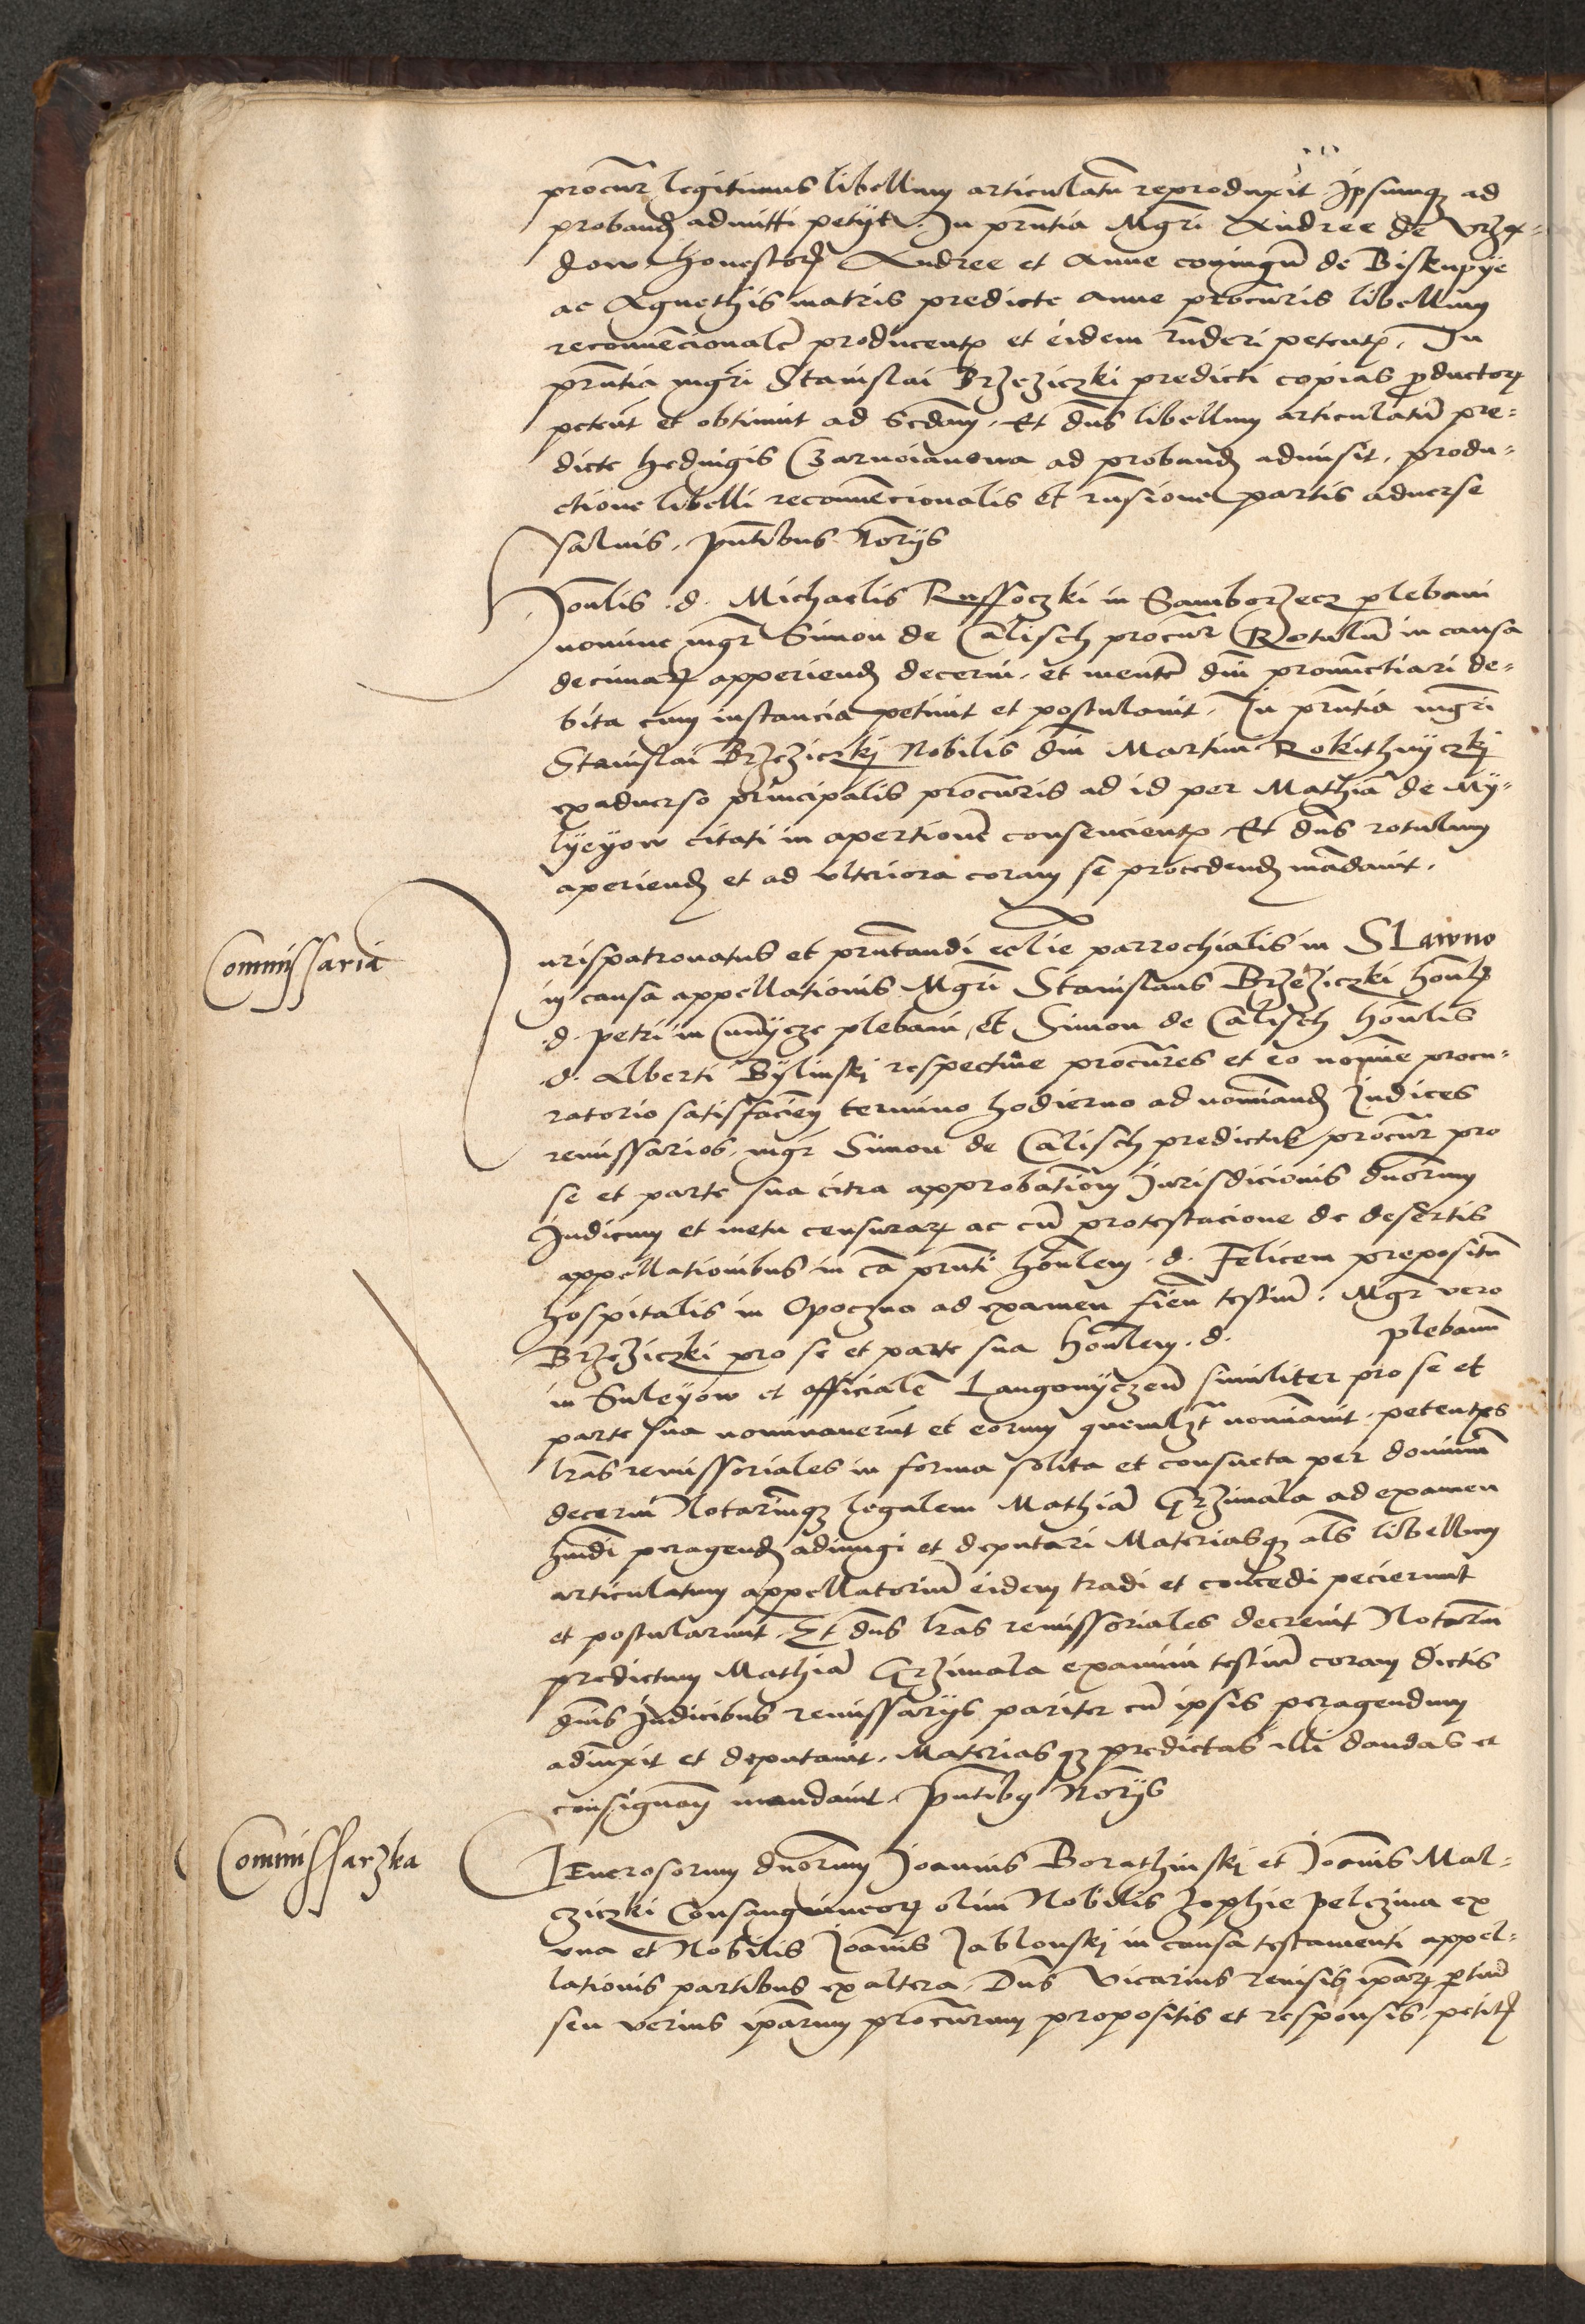 procur̃ legitimus libellum articulatũ reproduxit ipsumqȝ ad
proband̃ admitti petijt. In pñtia Mgr̃i Andree de Vrzą=
dow honestor̃ Andree et Anne coniugũ de Biskupÿe
ac Agnethis matris predicte Anne procur̃is libellum
reconuẽcionalẽ producent̃ et eidem r̃nderi petent̃. In
pñtia mgr̃i Stanislai Brzeziczki predicti copias productor̃
petent̃ et obtinuit ad scdam. Et dñs libellum articulatũ pre=
dicte Heduigis Czarnoianowa ad proband̃ admisit, produ=
ctione libelli reconuẽcionalis et r̃nsione partis aduerse
saluis. pñtibus Nor̃ijs
Honlis .d. Michaelis Russoczki in Samborzecz plebani
nomine mgr̃ Simon de Calisch procur̃ Rotulũ in causa
decimar̃ apperiend̃ decerni, et mentẽ dñi pronunctiari de=
bita cum instancia petiuit et postulauit. In pñtia mgr̃i
Stanislai Brzeziczkj Nobilis dñi Martini Rokithnÿczkj
ex aduerso principalis procur̃is ad id per Mathiã de Mÿ=
lÿeÿow citati in apertionẽ consencient̃. Et dñs rotulum
aperiend̃ et ad vlteriora coram se procedend̃ mãdauit.
Commissaria
Jurispatronatus et pñtandi ecl̃ie parrochialis in SLawno
in causa appellationis Mgr̃i Stanislaus Brzeziczki hon̑l̃
.d. petri in plebani et Simon de Calisch hon̑lis
.d. Alberti Bÿlinskj respectiue procur̃es et eo noı̃e procu=
ratorio satisfacien̄ termino hodierno ad nomı̃and̃ Judices
remissarios. mgr̃ Simon de Calisch predictus procur̃ pro
se et parte sua citra approbationẽ Jurisdicionis dñorum
Judicum et metu censurar̃ ac cũ protestacione de desertis
appellationibus in cã pñti hon̑lem .d. Felicem prepositũ
hospitalis in Opoczno ad examen fien̄ testiũ. Mgr̃ vero
Brzeziczki pro se et parte sua hon̑lem .d. plebanũ
in Suleÿow et officialẽ Langonÿczeñ similiter pro se et
parte sua nominauerũt et eorum nomı̃auit. petentes
lr̃as remissoriales in forma solita et consueta per dominũ
decerni Notariũqȝ legalem Mathiã Grzimala ad examen
hm̃di peragend̃ adiungi et deputari Materiasqȝ al̃s libellum
articulatum appellatoriũ eidem tradi et concedi pecierunt
et postularunt. Et dñs lr̃as remissoriales decreuit Notariũ
predictum Mathiã Grzimala examini testiũ coram dictis
dñis Judicibus remissarijs pariter cũ ipsis peragendum
adiũxit et deputauit. Materiasqȝ predictas illi dandas et
consignañ mandauit. pñtibus Nor̃ijs
Commissarzka
GEnerosorum dñorum Joannis Borathinskj et Joañis Mal=
cziczki Consanguineor̃ olim Nobilis Zophie pelczina ex
vna et Nobilis Joañis Jablonskj in causa testamenti appel=
lationis partibus ex altera. Dñs Vicarius reuisis ip̃ar̃ ptiũ
seu verius ip̃arum procur̃um propositis et responsis, petit̃